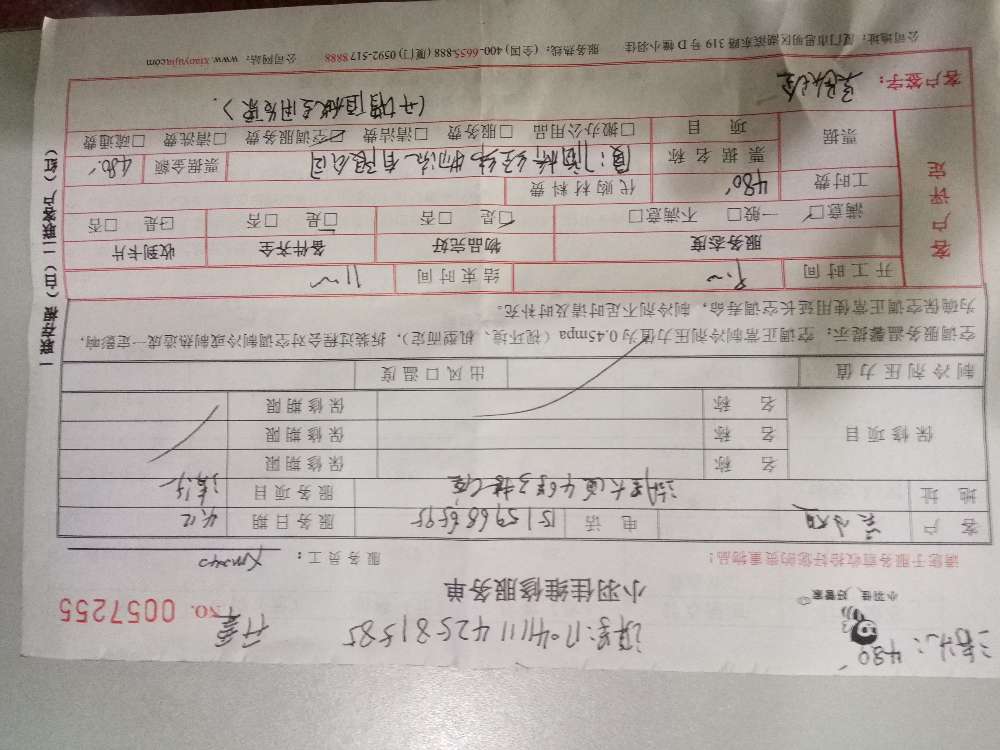 清洗：480
小羽佳 好管家
单号：170411142581585
开票
小羽佳维修服务单
NO. 0057255
请您于服务前收拾好您的贵重物品！
服务员工：
客 户
电 话 15159686595
服务日期
地 址
服务项目 清洗
保 修 项 目
名 称
保 修 期 限
名 称
保 修 期 限
名 称
保 修 期 限
制 冷 剂 压 力 值
出 风 口 温 度
空调服务温馨提示：空调正常制冷剂压力值为 0.45mpa（视环境、机型而定），拆装过程会对空调制冷或制热造成一定影响，
为确保空调正常使用延长空调寿命，制冷剂不足时请及时补充。
客 户 评 定
开 工 时 间
结 束 时 间
服务态度
物品完好
备件齐全
收到卡片
满意□ 一般□ 不满意□
是□ 否□
是□ 否□
是□ 否□
工时费 480
代 购 材 料 费
票据
票 据 名 称
有限公司
票据金额 480
项 目
□搬办公用品 □服务费 □清洁费 □空调服务费 □清洗费 □疏通费
客户签字：
公司地址：厦门市思明区湖滨东路 319 号 D 幢小羽佳 服务热线：（全国）400-6655-888（厦门）0592-5178888 公司网站：www.xiaoyujia.com
一联存根（白）二联客户（红）